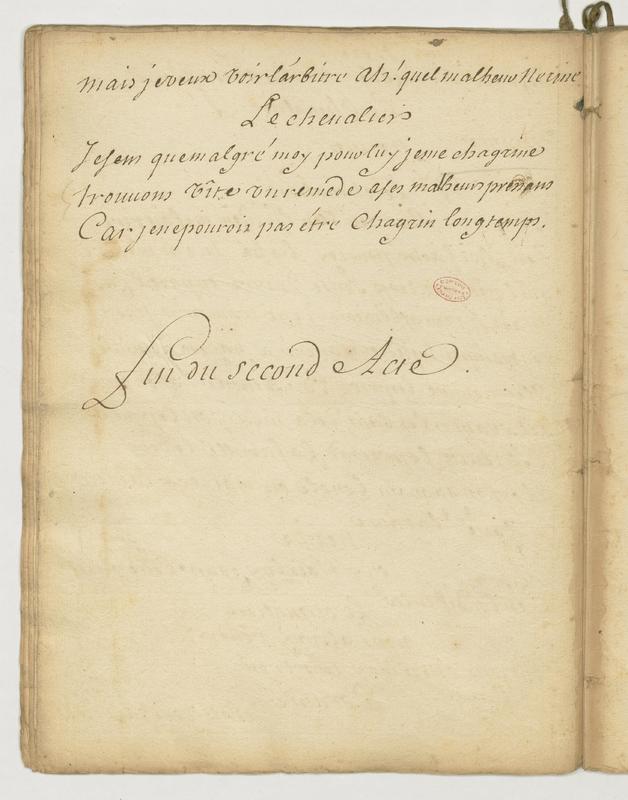 mais je veux voir l'arbitre Ah! quel malheur Nerine
Le chevalier
Je sens que malgré moy pour luy je me chagrine
trouvons vîte un remede a ses malheurs presans
Car je ne pourois pas étre Chagrin longtemps.
Fin du second Acte.